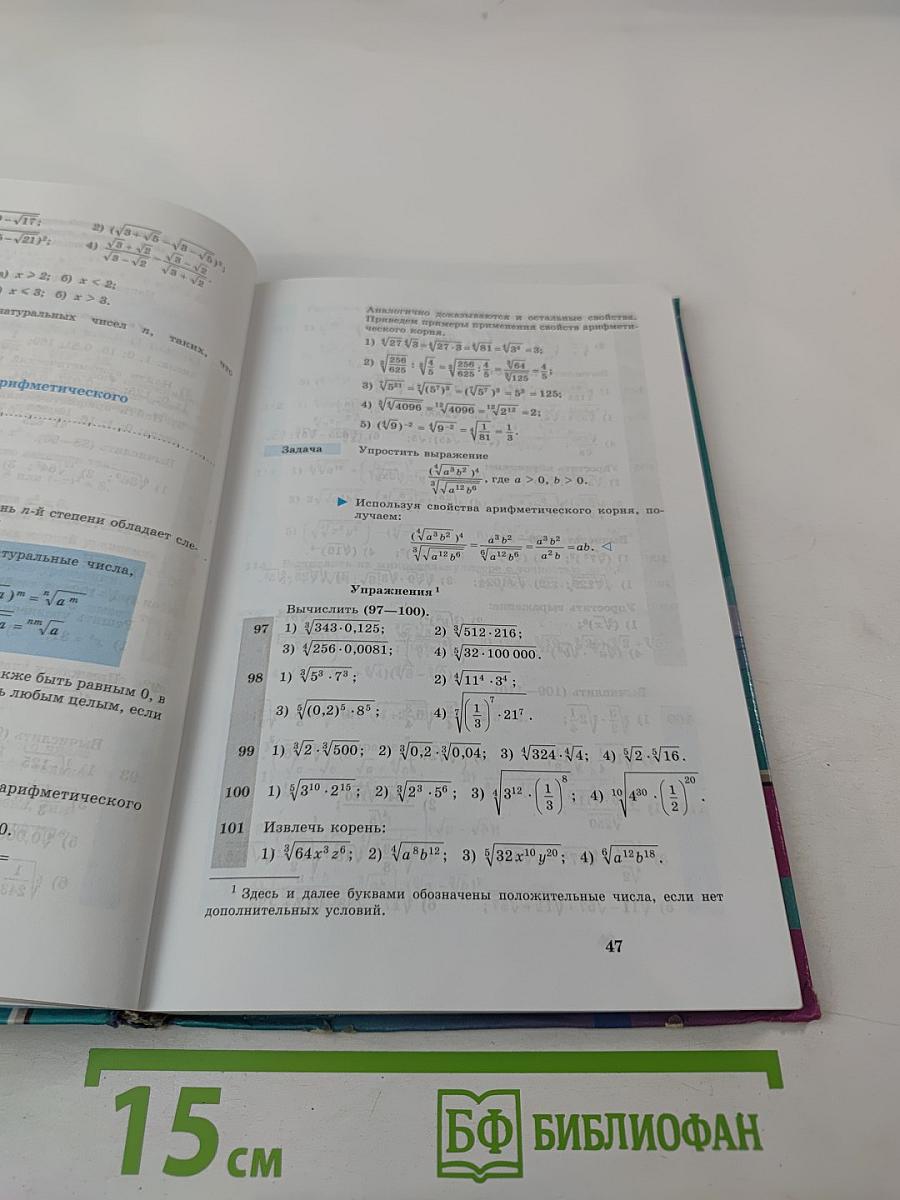 2) (√(3+√5) − √(3−√5))²;
4) (√3+√2)/(√3−√2) − (√3−√2)/(√3+√2).
x > 2; б) x < 2;
x < 3; б) x > 3.
натуральных чисел n, таких, что
арифметического
нь n-й степени обладает сле-
туральные числа,
)ᵐ = ⁿ√(aᵐ)
= ⁿᵐ√a
кже быть равным 0, в
ь любым целым, если
арифметического
0.
=
Аналогично доказываются и остальные свойства.
Приведем примеры применения свойств арифмети-
ческого корня.
1) ⁴√27 · ⁴√3 = ⁴√(27·3) = ⁴√81 = ⁴√(3⁴) = 3;
2) ³√(256/625) : ³√(4/5) = ³√(256/625 : 4/5) = ³√64/³√125 = 4/5;
3) ⁷√(5²¹) = ⁷√((5⁷)³) = (⁷√(5⁷))³ = 5³ = 125;
4) ³√(⁴√4096) = ¹²√4096 = ¹²√(2¹²) = 2;
5) (⁴√9)⁻² = ⁴√(9⁻²) = ⁴√(1/81) = 1/3.
Задача Упростить выражение
(⁴√(a³b²))⁴/³√(√(a¹²b⁶)), где a > 0, b > 0.
▶ Используя свойства арифметического корня, по-
лучаем:
(⁴√(a³b²))⁴/³√(√(a¹²b⁶)) = a³b²/⁶√(a¹²b⁶) = a³b²/a²b = ab. ◁
Упражнения¹
Вычислить (97—100).
97 1) ³√(343·0,125); 2) ³√(512·216);
3) ⁴√(256·0,0081; 4) ⁵√(32·100 000).
98 1) ³√(5³·7³); 2) ⁴√(11⁴·3⁴);
3) ⁵√((0,2)⁵·8⁵); 4) ⁷√((1/3)⁷·21⁷).
99 1) ³√2·³√500; 2) ³√0,2·³√0,04; 3) ⁴√324·⁴√4; 4) ⁵√2·⁵√16.
100 1) ⁵√(3¹⁰·2¹⁵); 2) ³√(2³·5⁶); 3) ⁴√(3¹²·(1/3)⁸); 4) ¹⁰√(4³⁰·(1/2)²⁰).
101 Извлечь корень:
1) ³√(64x³z⁶); 2) ⁴√(a⁸b¹²); 3) ⁵√(32x¹⁰y²⁰); 4) ⁶√(a¹²b¹⁸).
¹ Здесь и далее буквами обозначены положительные числа, если нет
дополнительных условий.
47
15 см
БФ БИБЛИОФАН